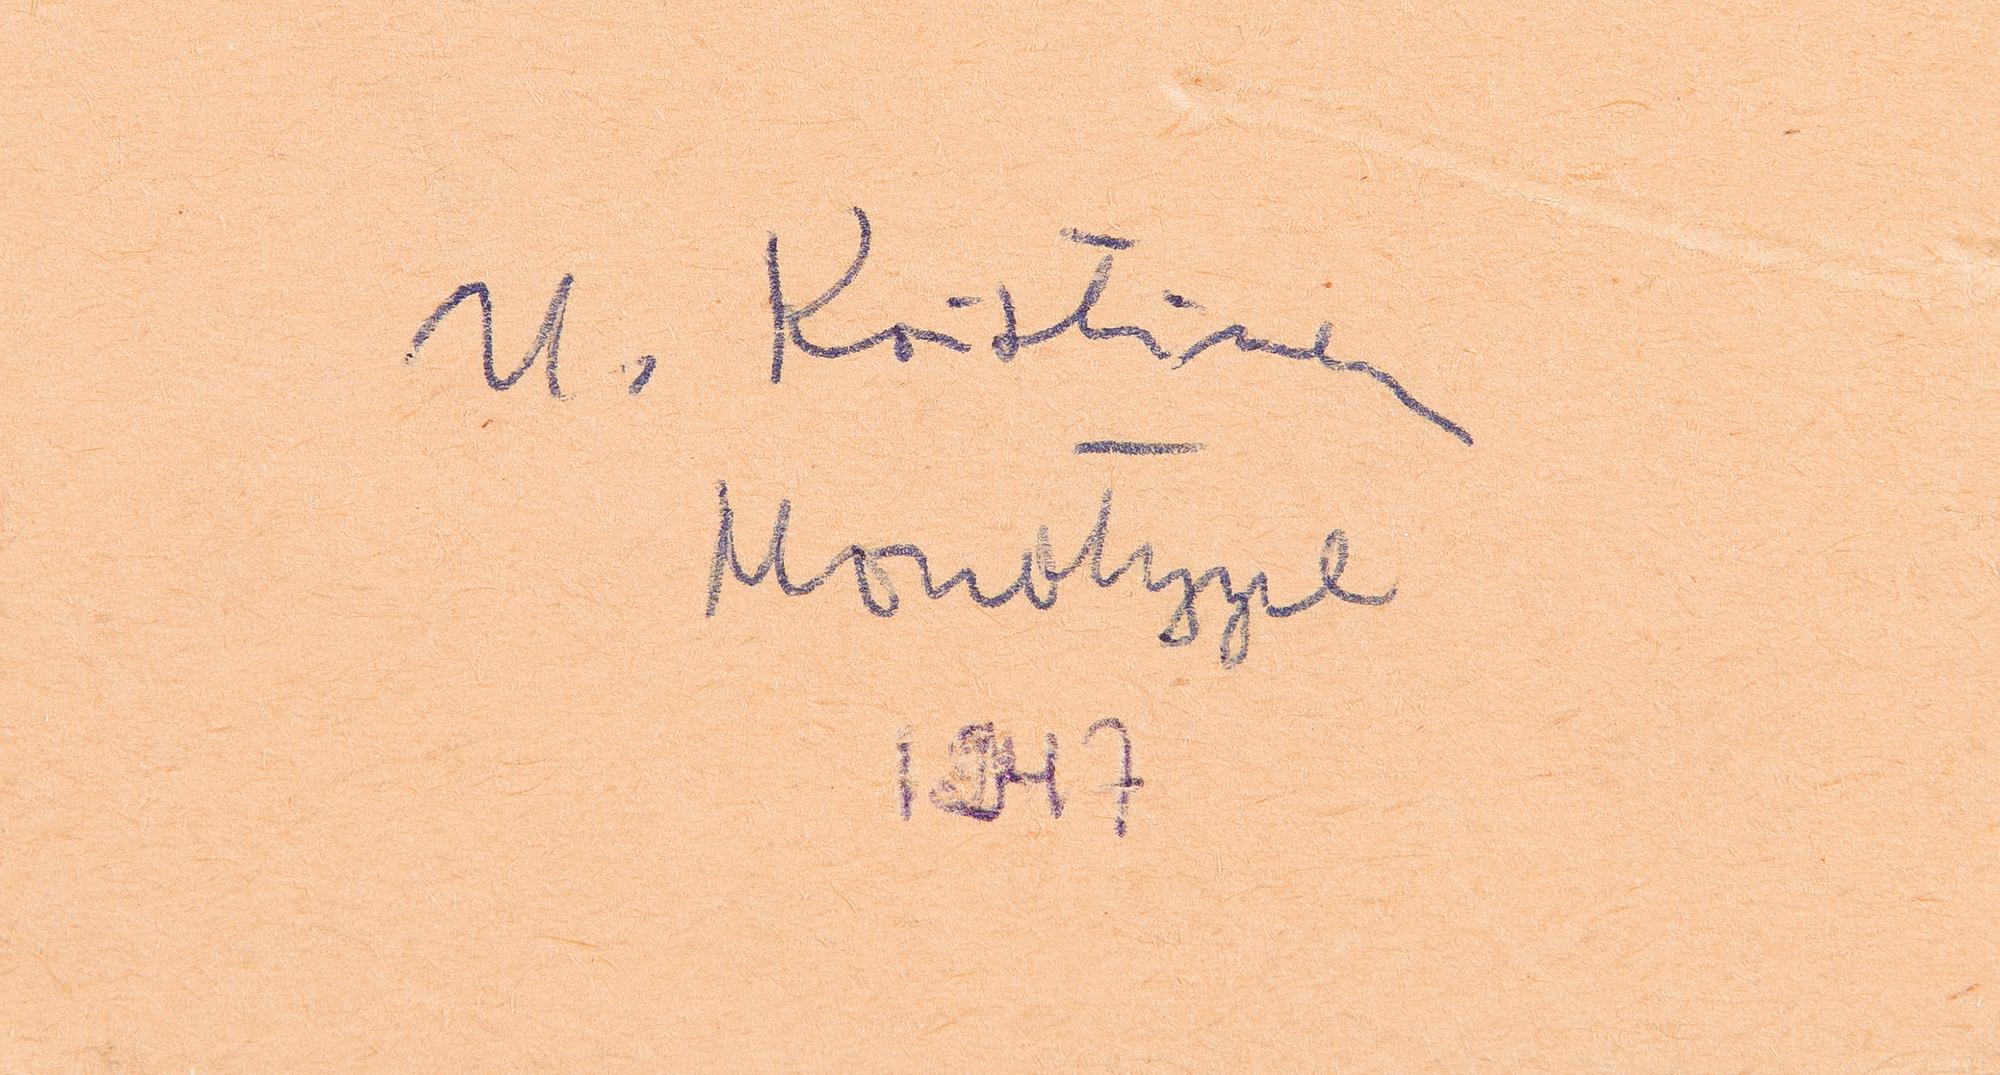 U. Kristinen
Monotype
1947